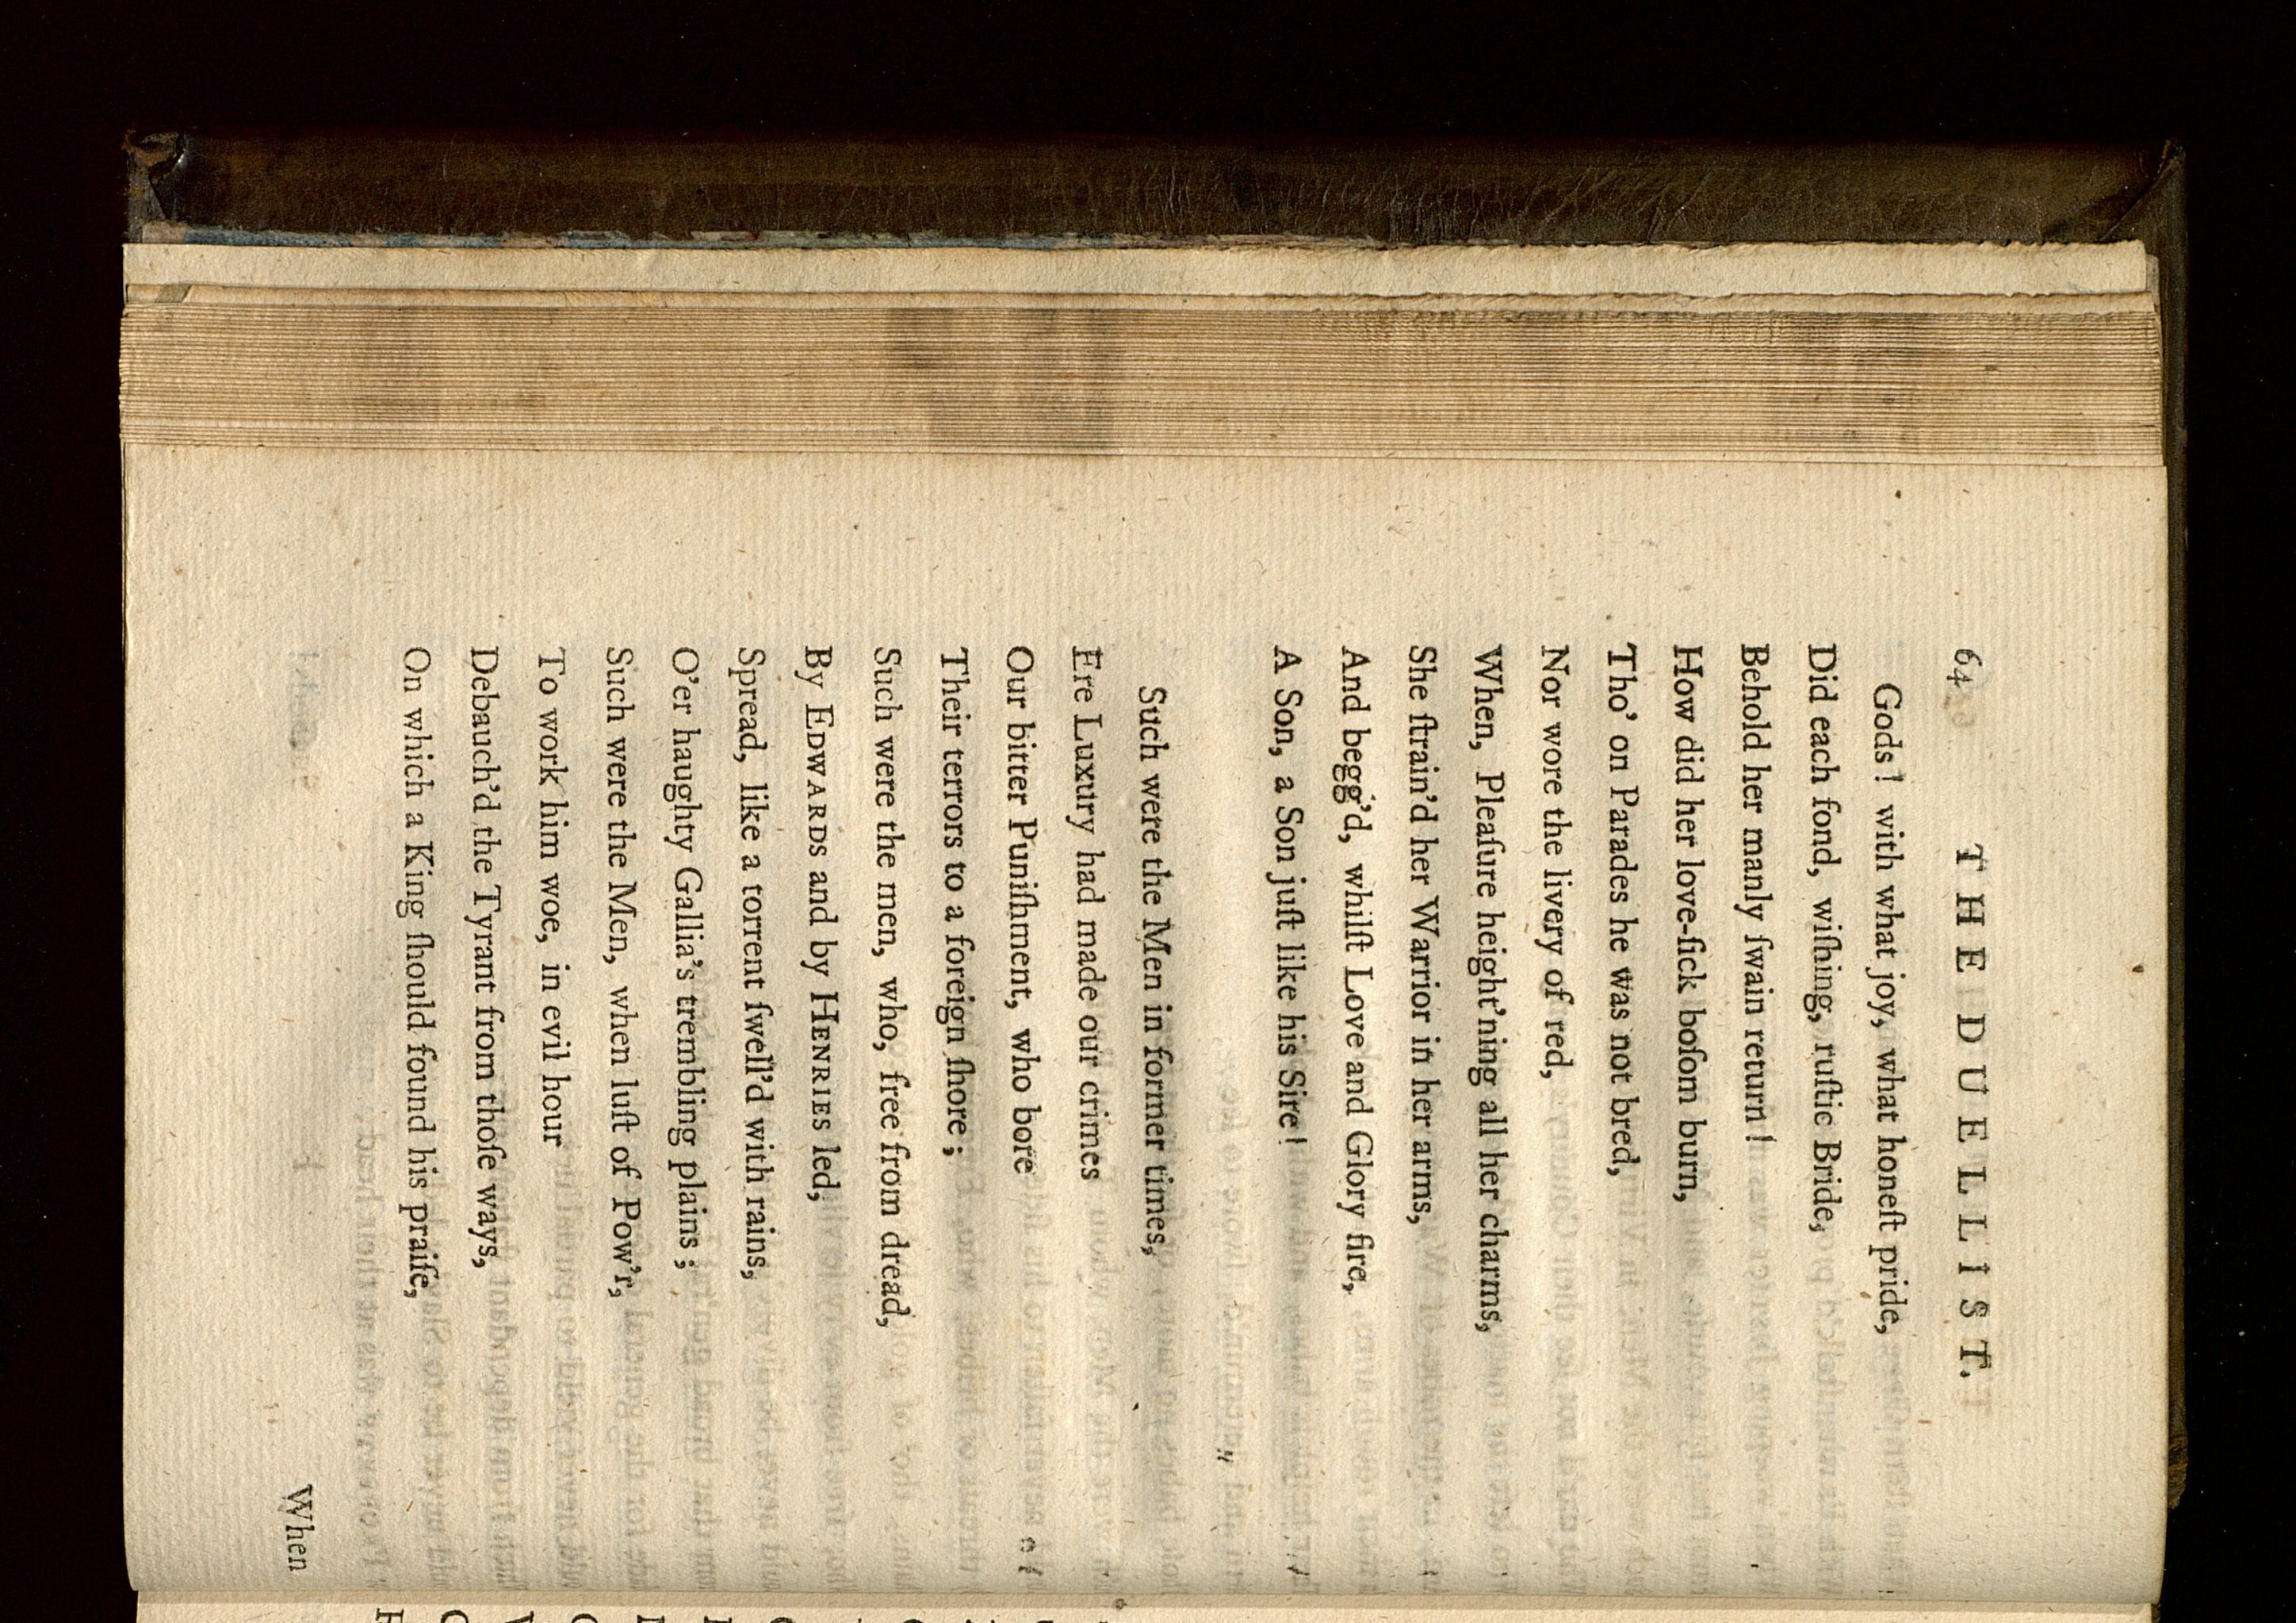 64 THE DUELLIST.
Gods! with what joy, what honeſt pride,
Did each fond, wiſhing, ruſtic Bride,
Behold her manly ſwain return!
How did her love-ſick boſom burn,
Tho' on Parades he was not bred,
Nor wore the livery of red,
When, Pleaſure height'ning all her charms,
She ſtrain'd her Warrior in her arms,
And begg'd, whilſt Love and Glory fire,
A Son, a Son juſt like his Sire!
Such were the Men in former times,
Ere Luxury had made our crimes
Our bitter Puniſhment, who bore
Their terrors to a foreign ſhore;
Such were the men, who, free from dread,
By EDWARDS and by HENRIES led,
Spread, like a torrent ſwell'd with rains,
O'er haughty Gallia's trembling plains;
Such were the Men, when luſt of Pow'r,
To work him woe, in evil hour
Debauch'd the Tyrant from thoſe ways,
On which a King ſhould found his praiſe,
When